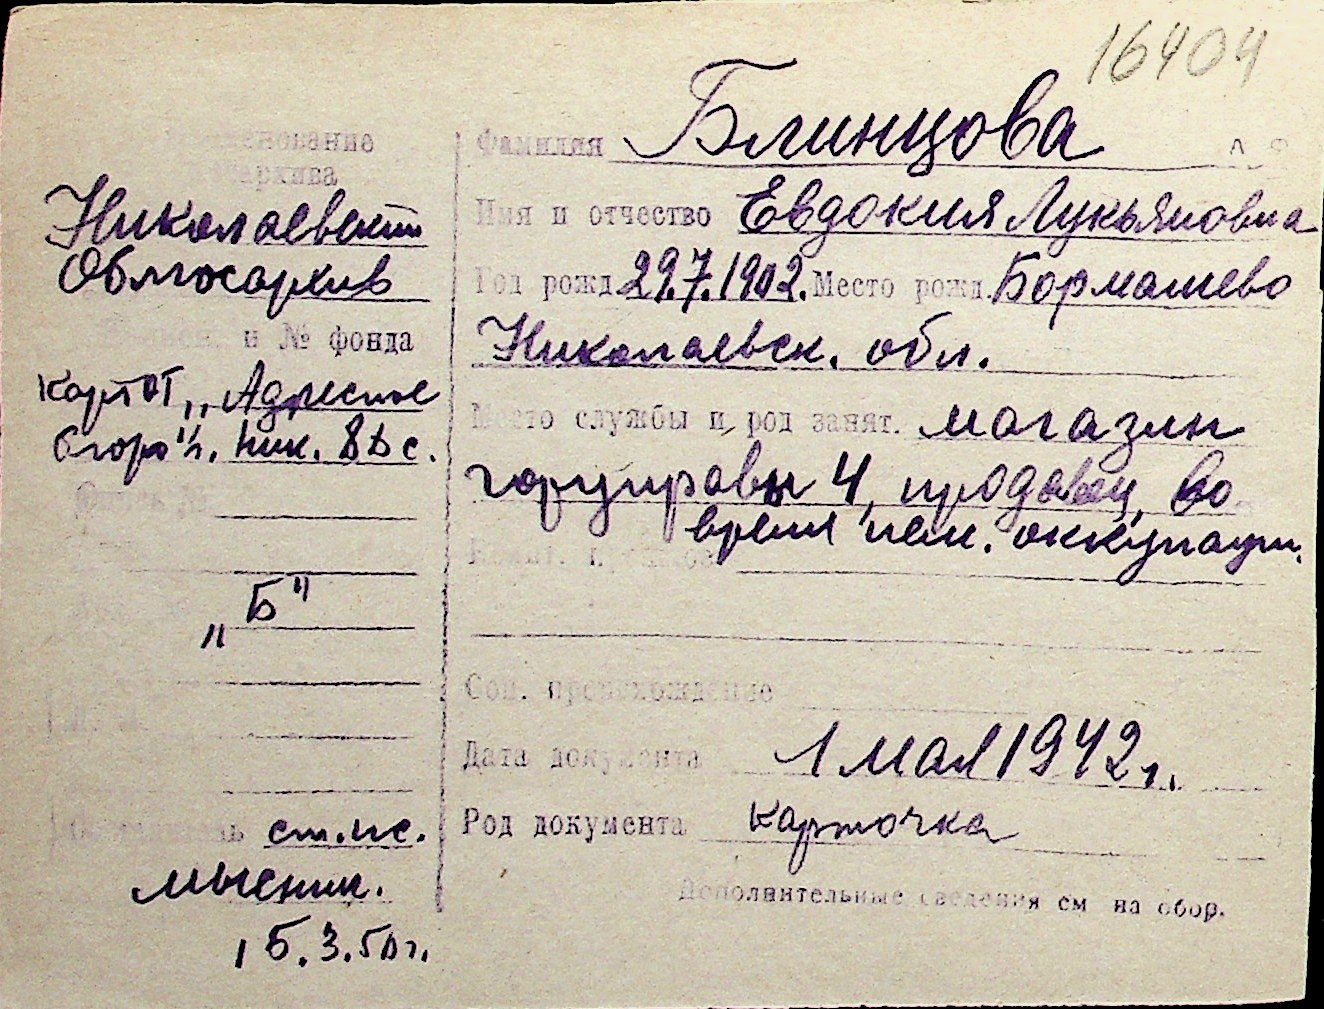 16404
Наименование
архива
Николаевский
Облгосархив
и № фонда
картот. „Адресное
бюро" г. Ник.
Опись №
„Б"
ст. н. с.
15.3.50 г.
Фамилия Блинцова
Имя и отчество Евдокия Лукьяновна
Год рожд. 29.7.1902. Место рожд. Бормашево
Николаевск. обл.
Место службы и род занят. магазин
горуправы 4, продавец, во
время нем. оккупации.
Соц. происхождение
Дата документа 1 мая 1942 г.
Род документа карточка
Дополнительные сведения см на обор.